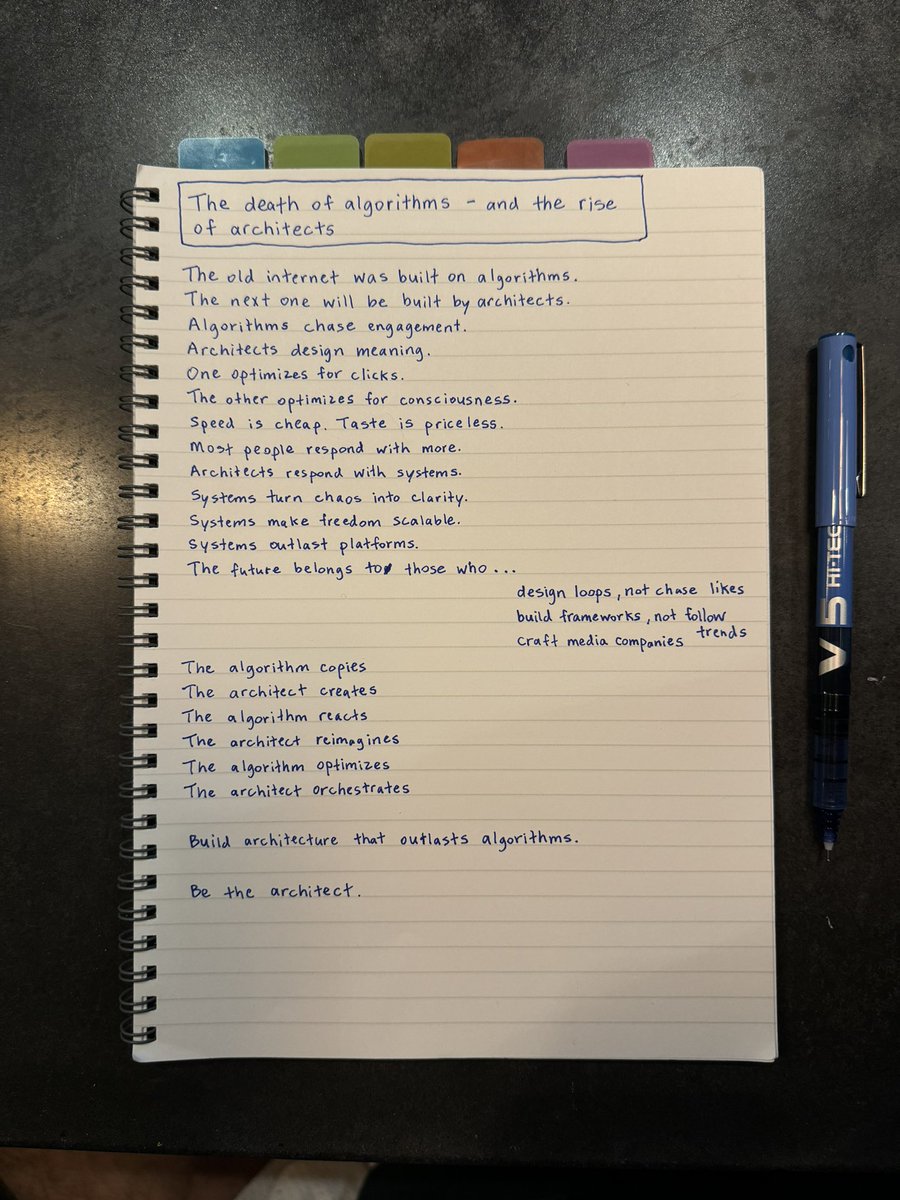 The death of algorithms - and the rise
of architects
The old internet was built on algorithms.
The next one will be built by architects.
Algorithms chase engagement.
Architects design meaning.
One optimizes for clicks.
The other optimizes for consciousness.
Speed is cheap. Taste is priceless.
Most people respond with more.
Architects respond with systems.
Systems turn chaos into clarity.
Systems make freedom scalable.
Systems outlast platforms.
The future belongs to those who...
design loops, not chase likes
build frameworks, not follow
trends
craft media companies
The algorithm copies
The architect creates
The algorithm reacts
The architect reimagines
The algorithm optimizes
The architect orchestrates
Build architecture that outlasts algorithms.
Be the architect.
V5 HI-TEC